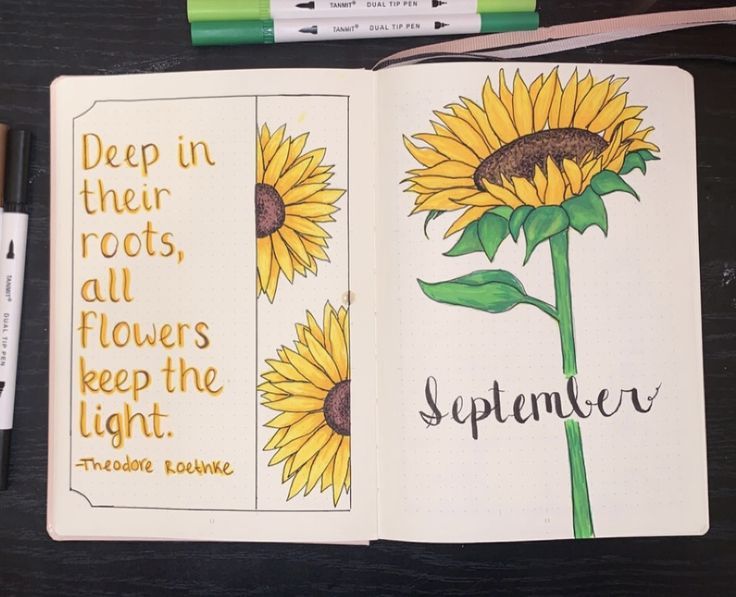 TANMIT® DUAL TIP PEN
TANMIT® DUAL TIP PEN
TANMIT® DUAL TIP PEN
Deep in
their
roots,
all
flowers
keep the
light.
-Theodore Roethke
September